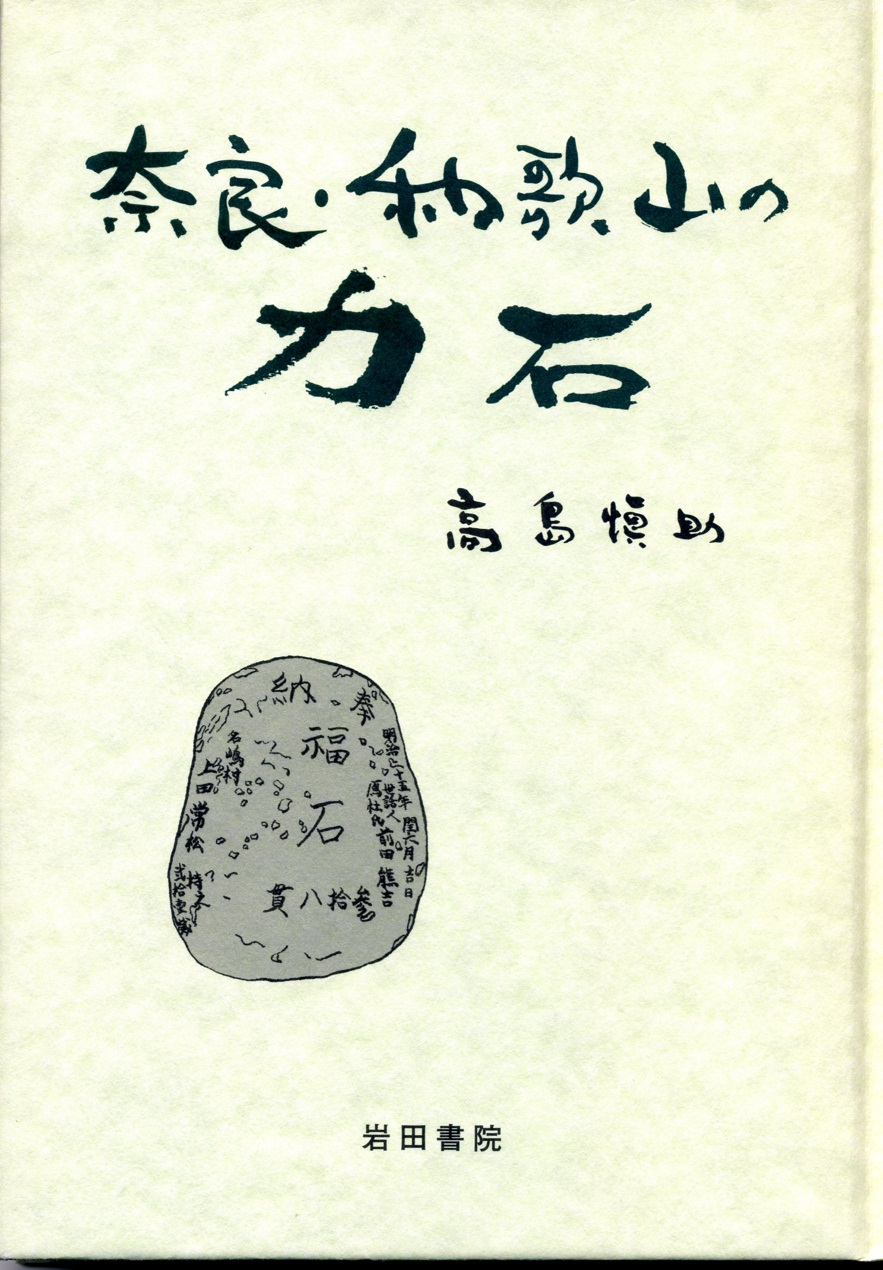 奈良・和歌山の
力石
高島愼助
奉納
福石
参拾八貫
明治二十五年 閏六月 吉日
世話人 前田 熊吉
名嶋村
上田 常松 持之
弐拾壹歳
岩田書院